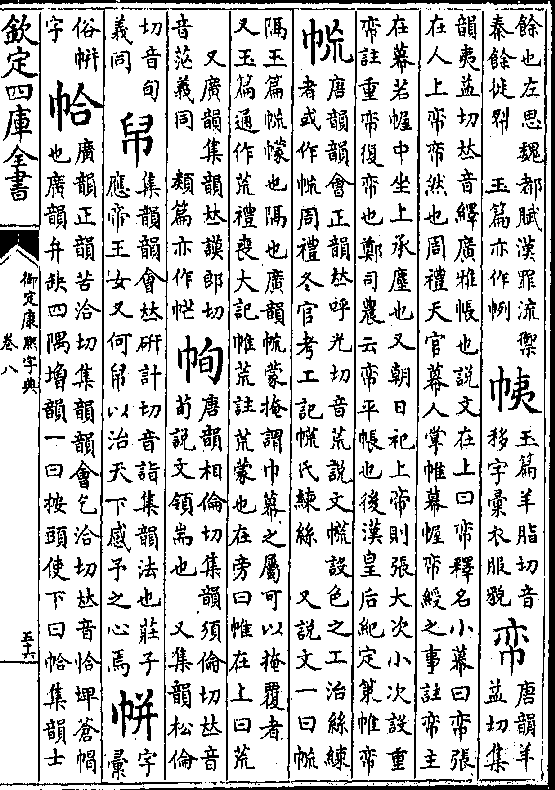 餘也左思魏都賦漢罪流禦
泰餘㣟𠛱 玉篇亦作㤠
玉篇羊脂切音
移字彙衣服貌
帟
唐韻羊
益切集
韻夷益切𠀤音繹廣雅帳也說文在上曰帟釋名小幕曰帟張
在人上帟帟然也周禮天官幕人掌帷幕幄帟綬之事註帟主
在幕若幄中坐上承塵也又朝日祀上帝則張大次小次設重
帟註重帟復帟也鄭司農云帟平帳也後漢皇后紀定策帷帟
㡆
唐韻韻會正韻𠀤呼光切音荒說文㡆設色之工治絲練
者或作㡆周禮冬官考工記㡆氏練絲 又說文一曰㡆
隔玉篇㡆幪也隔也廣韻㡆蒙掩謂巾幕之屬可以掩覆者
又玉篇通作荒禮喪大記帷荒註荒蒙也在旁曰帷在上曰荒
又廣韻集韻𠀤謨郎切
音茫義同 類篇亦作
㡄
唐韻相倫切集韻須倫切𠀤音
荀說文領耑也 又集韻松倫
切音旬
義同
帠
集韻韻會𠀤硏計切音詣集韻法也莊子
應帝王女又何帠以治天下感予之心焉
帡
字
彙
俗帲
字
帢
廣韻正韻苦洽切集韻韻會乞洽切𠀤音恰埤蒼帽
也廣韻弁缺四隅增韻一曰按頭使下曰帢集韻士
欽定四庫全書
御定康熙字典
卷八
五十六